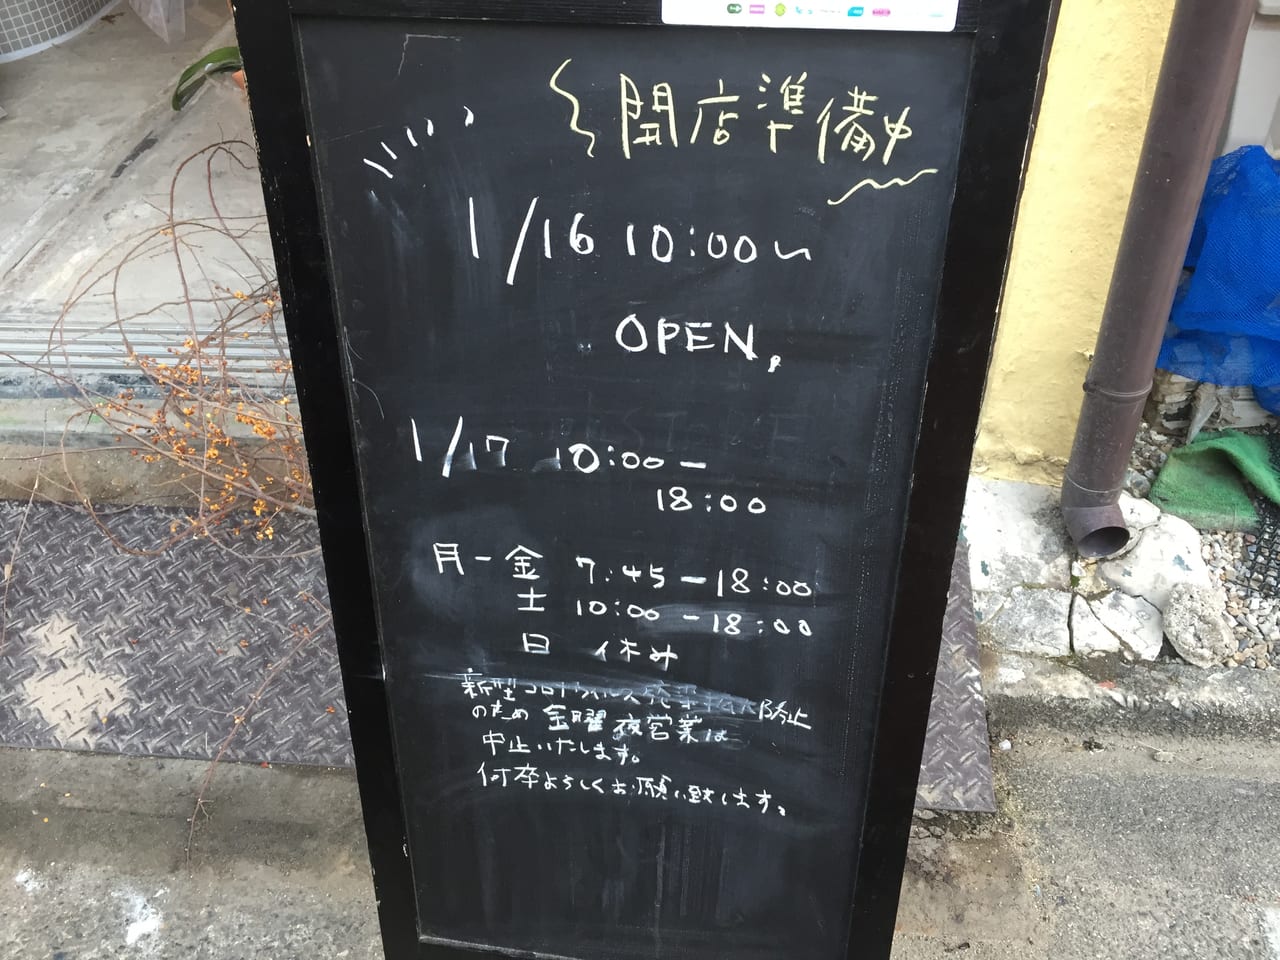 開店準備中
1/16 10:00〜
OPEN,
1/17 10:00-
18:00
月-金 7:45-18:00
土 10:00-18:00
日 休み
新型コロナウィルス感染拡大防止
のため 金曜夜営業は
中止いたします。
何卒よろしくお願い致します。